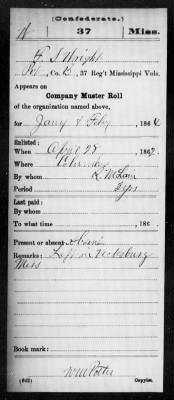 (Confederate.)
W 37 Miss.
Wright
Pvt, Co. , 37 Reg't Mississippi Vols.
Appears on
Company Muster Roll
of the organization named above,
for Jany & Feby, 1864
Enlisted:
When April 28, 1862.
Where Columbus
By whom
Period 3 yrs
Last paid:
By whom
To what time , 186 .
Present or absent Absent
Remarks: Left in Vicksburg
Miss
Book mark:
(642) Copyist.